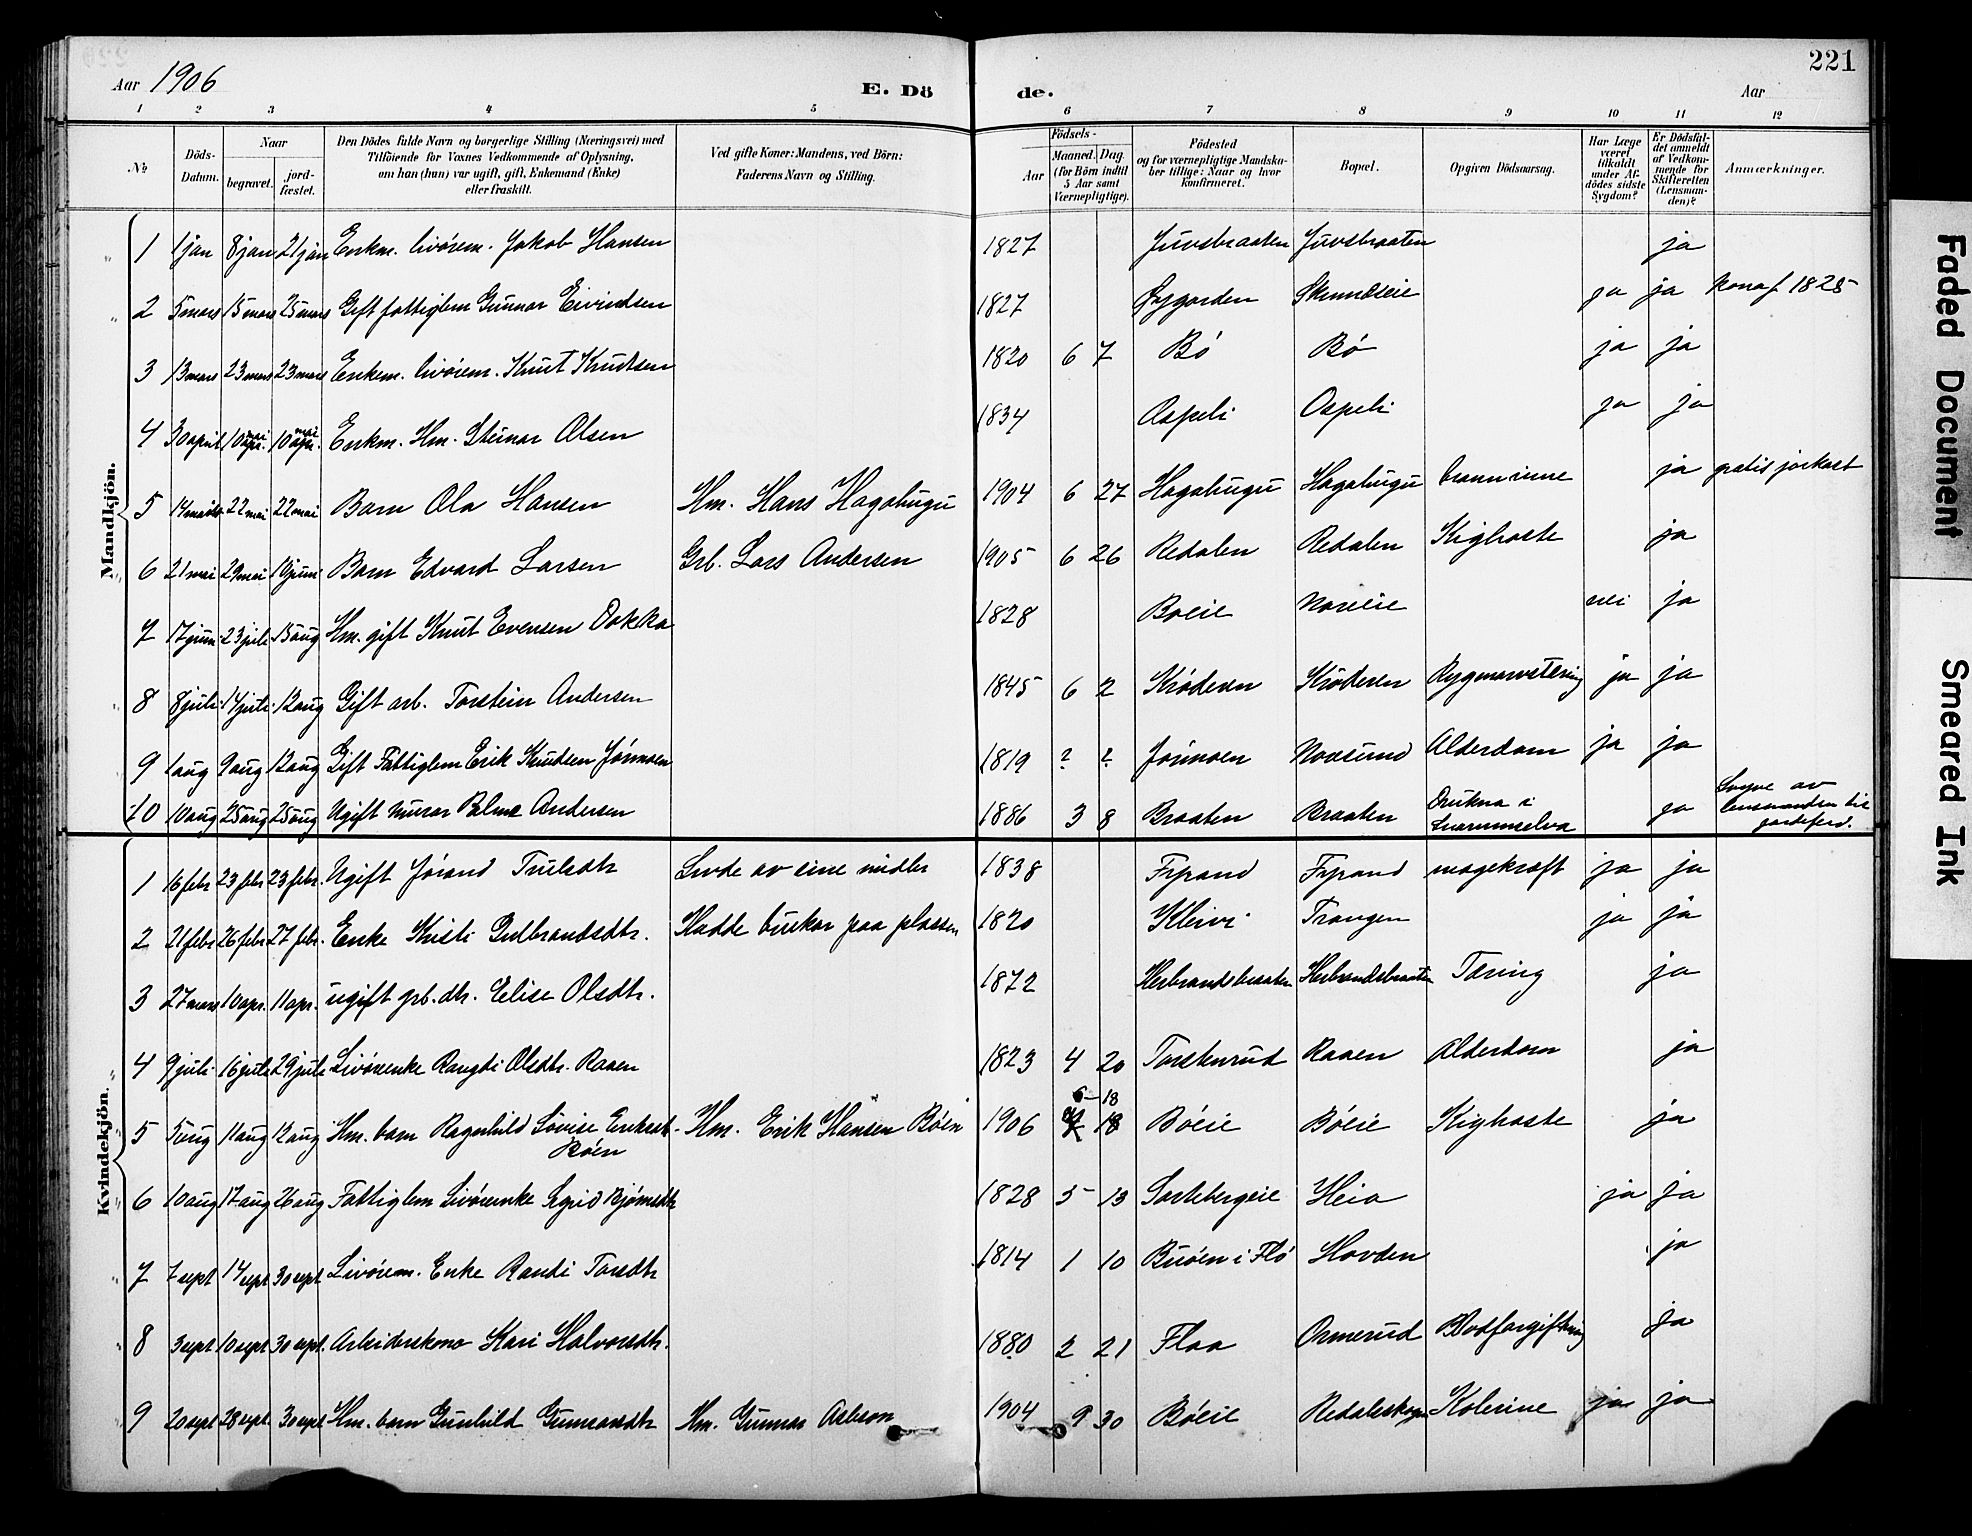 221
Aar 1906
E. Dö de.
Aar
1 2 3 4 5 6 7 8 9 10 11 12
№
Döds-Datum.
Naar
begravet.
jord-fæstet.
Den Dödes fulde Navn og borgerlige Stilling (Næringsvei) med
Tilföiende for Voxnes Vedkommende af Oplysning,
om han (hun) var ugift, gift, Enkemand (Enke)
eller fraskilt.
Ved gifte Koner: Mandens, ved Börn:
Faderens Navn og Stilling.
Födsels-
Aar
Maaned. Dag
(for Börn indtil
5 Aar samt
Værnepligtige).
Födested
og for værnepligtige Mandska-
ber tillige: Naar og hvor
konfirmeret.
Bopæl.
Opgiven Dödsaarsag.
Har Læge
været
tilkaldt
under Af-
dödes sidste
Sygdom?
Er Dödsfal-
det anmeldt
af Vedkom-
mende for
Skifteretten
(Lensman-
den)?
Anmærkninger.
Mandkjön.
1 1 jan 8 jan 21 jan Enkm. livörem. Jakob Hansen 1827 Juvsbraaten Juvsbraaten ja
2 5 mars 15 mars 25 mars Gift fattiglem Gunnar Eivindsen 1827 Øygarden ja ja Kona f. 1825
3 13 mars 23 mars 23 mars Enkem. livörem. Knut Knudsen 1820 6 7 Bö Bö ja ja
4 30 april 10 mai 10 mai Enkm. Hm. Steinar Olsen 1834 Aspeli Aspeli ja ja
5 14 mai 22 mai 22 mai Barn Ola Hansen Hm. Hans Hagahugu 1904 6 27 Hagahugu Hagahugu ja gratis jorkast
6 21 mai 29 mai 10 juni Barn Edvard Larsen Grb. Lars Andersen 1905 6 26 Redalen Redalen Kighoste ja
7 17 juni 23 juli 15 aug Hm. gift Knut Evensen Dokka 1828 Boeie Noreeie nei ja
8 8 juli 14 juli 12 aug Gift arb. Torstein Andersen 1845 6 2 Kröderen Kröderen Rygmarvstæring ja ja
9 1 aug 9 aug 12 aug Gift Fattiglem Erik Knudsen Jönmoen 1819 ? ? Jönmoen Noresund Alderdom ja ja
10 10 aug 25 aug 25 aug Ugift murar Palme Andersen 1886 3 8 Braaten Braaten Drukna i Snarumselva ja av lensmanden til
Kvindekjön.
1 16 febr 23 febr 23 febr. Ugift Jörand Trulsdtr Levde av sine midler 1838 Frpand Frpand magekræft ja ja
2 21 febr 26 febr 27 febr. Enke Kristi Gulbrandsdtr. Hadde burkar paa plassen 1820 Kleivi Trangen ja ja
3 27 mars 10 apr. 11 apr. ugift grb. dtr. Elise Olsdtr. 1872 Herbrandsbraaten Herbrandsbraaten Tæring ja
4 9 juli 16 juli 29 juli Livörenke Rangdi Olsdtr. Raaen 1823 4 20 Torstenrud Raaen Alderdom ja
6 - 18
5 5 aug 11 aug 12 aug Hm. barn Ragnhild Lovise Eriksdtr. Böen Hm. Erik Hansen Böen 1906 18 Böeie Böeie Kighoste ja
6 10 aug 17 aug 26 aug Fattiglem Livörenke Sigrid Björnsdtr 1828 5 13 Sortebergeie Heia ja ja
7 7 sept 14 sept 30 sept Livörem. Enke Randi Torsdtr 1814 1 10 Buöen i Flö Hovden ja
8 3 sept 10 sept 30 sept. Arbeiderskona Kari Halvorsdtr. 1880 2 21 Flaa Ormerud Blodforgiftning ja
9 20 sept 28 sept. 30 sept Hm. barn Gunhild Gunnarsdtr Hm. Gunnar Asleson 1904 9 30 Böeie Redaleskogen Kolerine ja ja
Faded Document
Smeared Ink